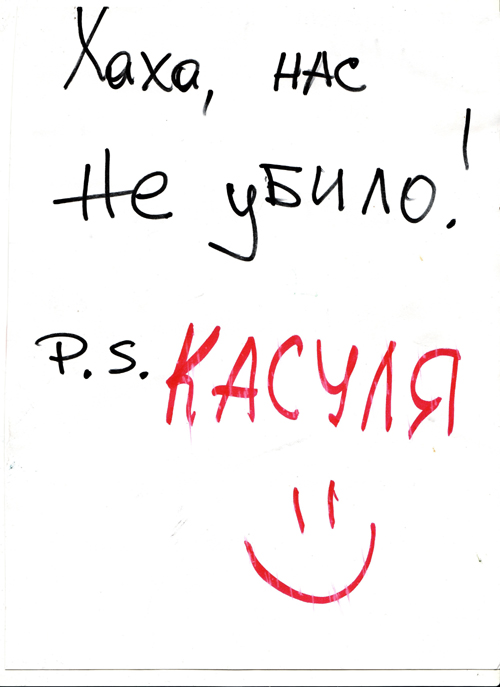 Хаха, нас
Не убило!
P.S. КАСУЛЯ